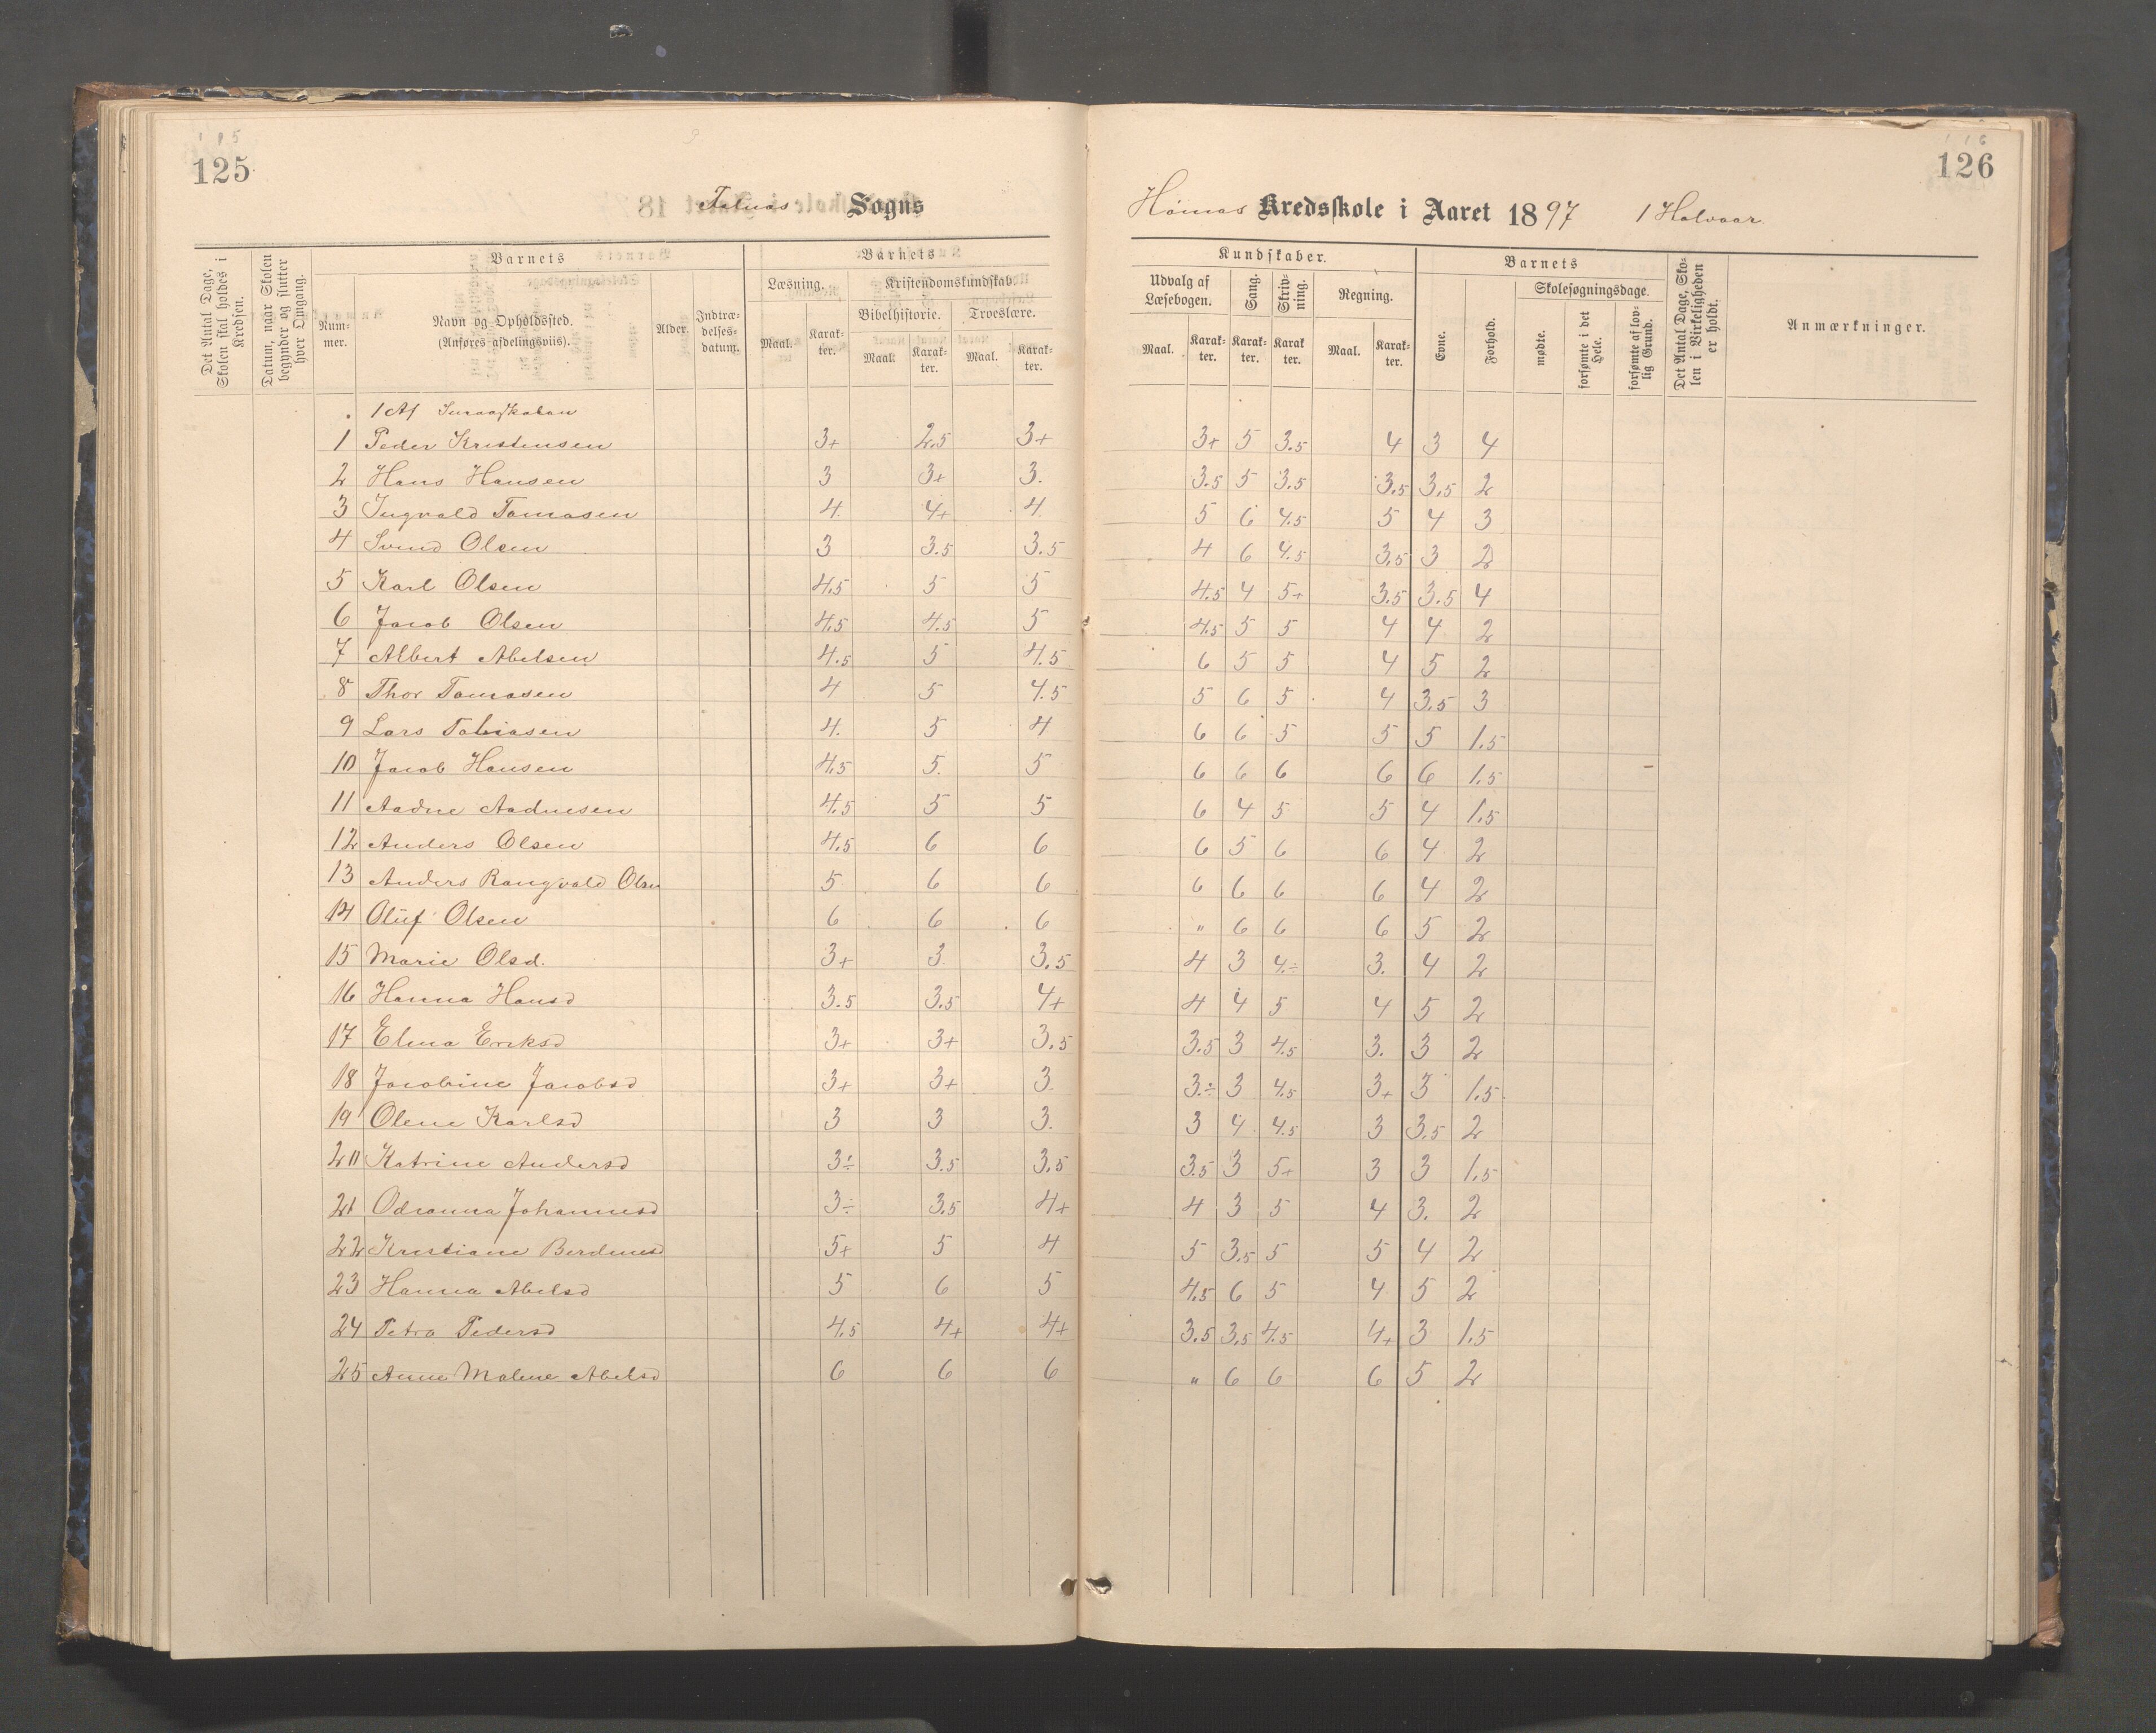 125
126
Sogns
Kredsskole i Aaret 1897 1 Halvaar.
Det Antal Dage, Skolen skal holdes i Kredsen.
Datum, naar Skolen begynder og slutter hver Omgang.
Barnets
Nummer.
Navn og Opholdssted.
(Anføres afdelingsviis).
Alder.
Indtrædelsesdatum.
Barnets
Læsning.
Maal.
Karakter.
Kristendomskundskab
Bibelhistorie.
Maal.
Karakter.
Troeslære.
Maal.
Karakter.
Kundskaber.
Udvalg af Læsebogen.
Maal.
Karakter.
Sang.
Karakter.
Skrivning.
Karakter.
Regning.
Maal.
Karakter.
Barnets
Evne.
Forhold.
Skolesøgningsdage.
mødte.
forsømte i det Hele.
forsømte af lovlig Grund.
Det Antal Dage, Skolen i Virkeligheden er holdt.
Anmærkninger.
1 Af Smaaskolan
1 Peder Kristensen 3+ 2.5 3+ 3+ 5 3.5 4 3 4
2 Hans Hansen 3 3+ 3. 3.5 5 3.5 3.5 3.5 2
3 Ingvald Tomasen 4. 4+ 4 5 6 4.5 5 4 3
4 Svend Olsen 3 3.5 3.5 4 6 4.5 3.5 3 2
5 Karl Olsen 4.5 5 5 4.5 4 5+ 3.5 3.5 4
6 Jacob Olsen 4.5 4.5 5 4.5 5 5 4 4 2
7 Albert Abelsen 4.5 5 4.5 6 5 5 4 5 2
8 Thor Tomasen 4 5 4.5 5 6 5 4 3.5 3
9 Lars Tobiasen 4. 5 4 6 6 5 5 5 1.5
10 Jacob Hansen 4.5 5. 5 6 6 6 6 6 1.5
11 Aadne Aadnesen 4.5 5 5 6 4 5 5 4 1.5
12 Anders Olsen 4.5 6 6 6 5 6 6 4 2
13 Anders Rangvald Olsen 5 6 6 6 6 6 6 4 2
14 Oluf Olsen 6 6 6 " 6 6 6 5 2
15 Marie Olsd. 3+ 3 3.5 4 3 4÷ 3. 4 2
16 Hanna Hansd 3.5 3.5 4+ 4 4 5 4 5 2
17 Elena Eriksd 3+ 3+ 3.5 3.5 3 4.5 3. 3 2
18 Jacobine Jacobsd 3+ 3+ 3. 3÷ 3 4.5 3+ 3 1.5
19 Olene Karlsd 3 3 3. 3 4 4.5 3 3.5 2
20 Katrine Andersd 3÷ 3.5 3.5 3.5 3 5+ 3 3 1.5
21 Odeanna Johannesd 3÷ 3.5 4+ 4 3 5 4 3. 2
22 Kristiane Berdinesd 5+ 5 4 5 3.5 5 5 4 2
23 Hanna Abelsd 5 6 5 4.5 6 5 4 5 2
24 Petra Pedersd 4.5 4+ 4+ 3.5 3.5 4.5 4+ 3 1.5
25 Anne Malene Abelsd 6 6 6 " 6 6 6 5 2